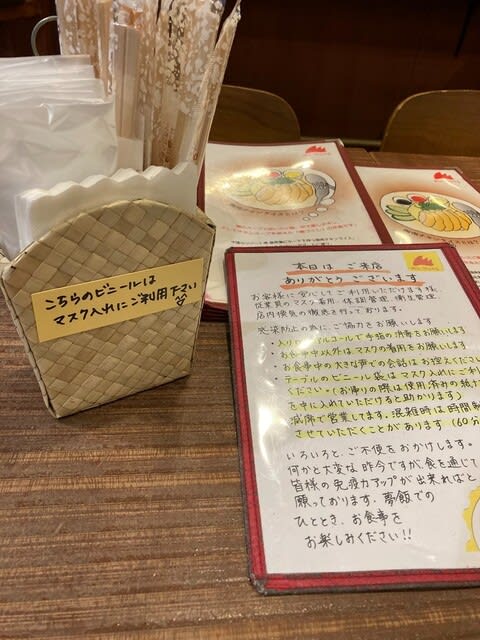 こちらのビニールは
マスク入れにご利用下さい
本日は ご来店
ありがとう ございます
お客様に安心してご利用いただけます様、
従業員のマスク着用、体調管理、衛生管理、
店内換気の徹底を行っております。
感染防止の為に、ご協力をお願いします
・入り口アルコールで手指の消毒をお願いします
・お食事中以外は、マスクの着用をお願いします
・お食事中の大きな声での会話はお控えください
・テーブルのビニール袋はマスク入れにご利
ください(お帰りの際は使用済みの紙ナ
を中に入れていただけると助かります)
・減席で営業してます。混雑時は時間制
させていただくことがあります(60分
いろいろと、ご不便をおかけします。
何かと大変な昨今ですが、食を通じて
皆様の免疫力アップが出来ればと
願っております。夢飯での
ひととき、お食事を
お楽しみください!!